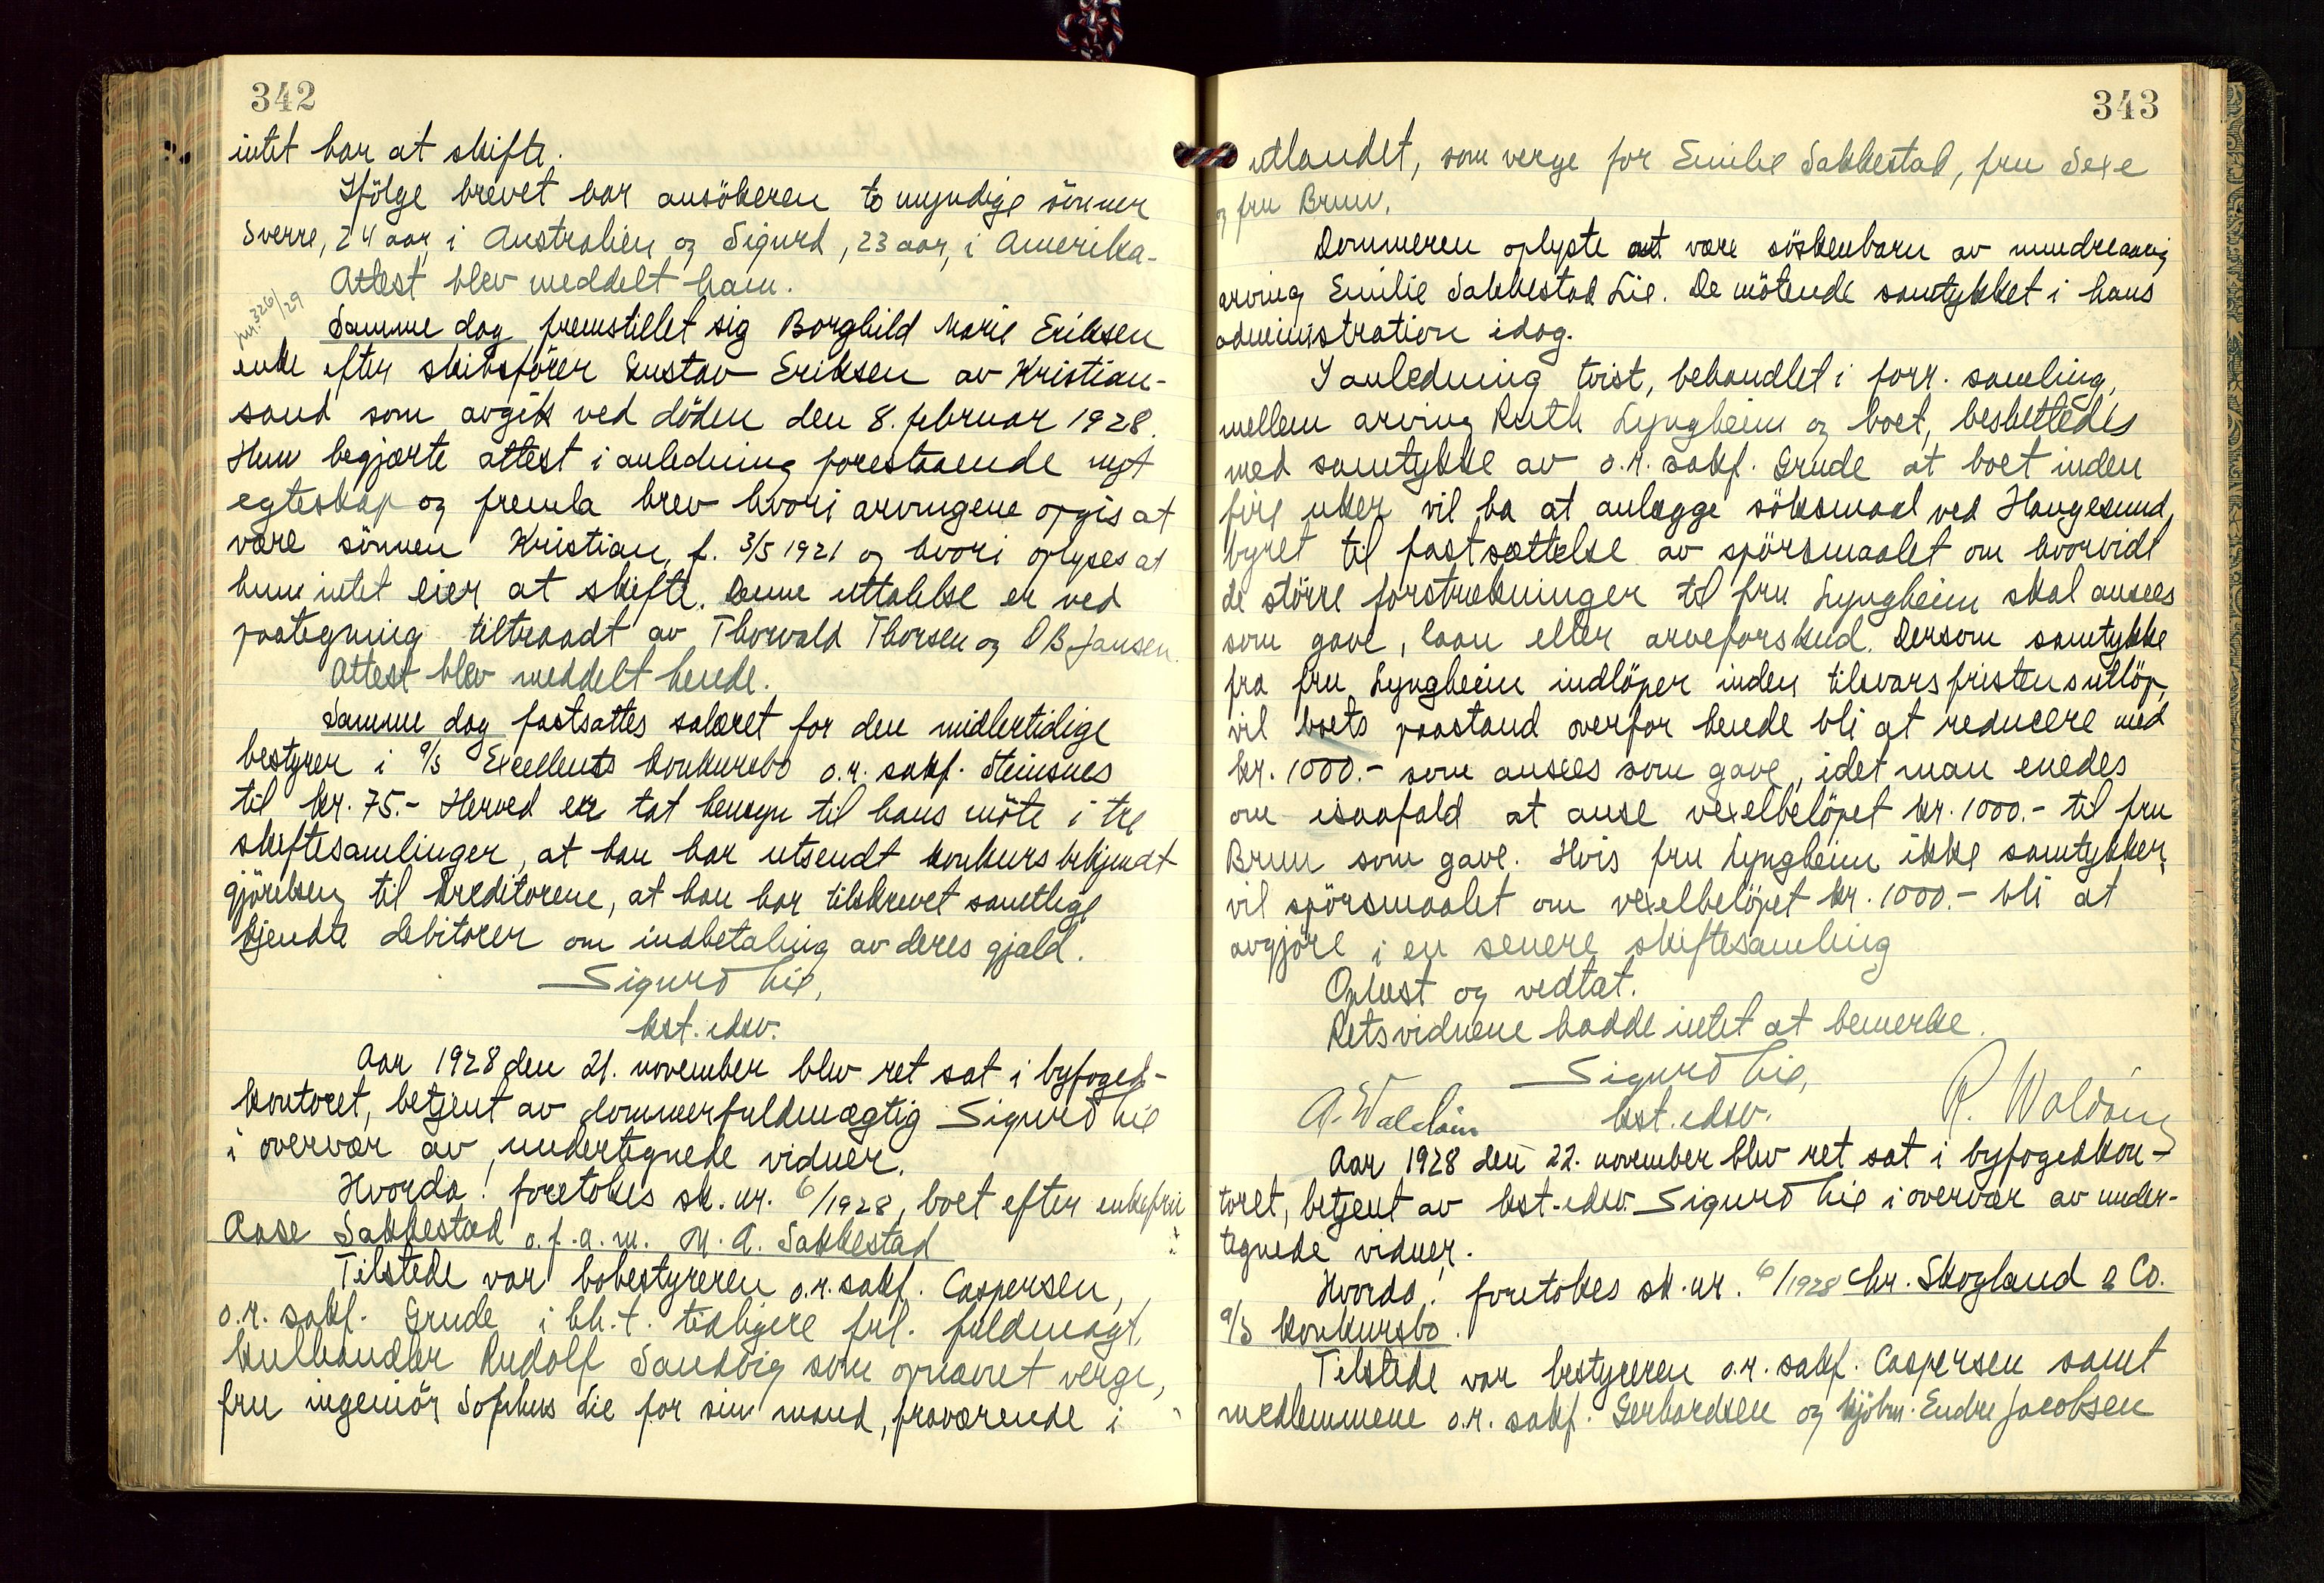 342
intet har at skifte.
Ifölge brevet har ansökeren to myndige sönner
Sverre, 24 aar, i Australien og Sigurd, 23 aar, i Amerika.
Attest blev meddelt ham.
jnr. 326/29
Samme dag fremstillet sig Borghild Marie Eriksen
enke efter skibsförer Gustav Eriksen av Kristian-
sand som avgik ved döden den 8. februar 1928.
Hun begjærte attest i anledning forestaaende nyt
egteskap og fremla brev hvori arvingene opgis at
være sönnen Kristian, f. 3/5 1921 og hvori oplyses at
hun intet eier at skifte. Denne uttalelse er ved
paategning tiltraadt av Thorvald Thorsen og O B Jansen.
Attest blev meddelt hende.
Samme dag fastsattes salæret for den midlertidige
bestyrer i a/s Excellents konkursbo o.r. sakf. Steinsnes
til kr. 75.- Herved er tat hensyn til hans möte i tre
skiftesamlinger, at han har utsendt konkursbekjendt
gjörelsen til kreditorene, at han har tilskrevet samtlige
kjendte debitorer om indbetaling av deres gjæld.
Sigurd Lie,
kst. edsv.
Aar 1928 den 21. november blev ret sat i byfoged-
kontoret, betjent av dommerfuldmægtig Sigurd Lie
i overvær av undertegnede vidner.
Hvorda! foretokes sk. nr. 6/1928, boet efter enkefru
Aase Sakkestad o.f.a.m. M. A. Sakkestad
Tilstede var bobestyreren o.r. sakf. Caspersen,
o.r. sakf. Grude i h.h.t. tidligere frl. fuldmagt,
kulhandler Rudolf Sandvig som opnævnt verge,
fru ingeniör Sophus Lie for sin mand, fraværende i
343
utlandet, som verge for Emilie Sakkestad, fru Sexe
og fru Bruun.
Dommeren oplyste at være söskenbarn av mindreaarig
arving Emilie Sakkestad Lie. De mötende samtykket i hans
administration idag.
I anledning tvist, behandlet i forr. samling,
mellem arving Ruth Lyngheim og boet, besluttedes
med samtykke av o.r. sakf. Grude at boet inden
fire uker vil ha at anlægge söksmaal ved Haugesund
byret til fastsættelse av spörsmaalet om hvorvidt
de större forstrækninger til fru Lyngheim skal ansees
som gave, laan eller arveforskud. Dersom samtykke
fra fru Lyngheim indlöper inden tilsvarsfristens utlöp,
vil boets paastand overfor hende bli at reducere med
kr. 1000.- som ansees som gave, idet man enedes
om isaafald at anse vexelbelöpet kr. 1000.- til fru
Bruun som gave. Hvis fru Lyngheim ikke samtykker,
vil spörsmaalet om vexelbelöpet kr. 1000.- bli at
avgjöre i en senere skiftesamling
Oplæst og vedtat.
Retsvidnene hadde intet at bemerke.
Sigurd Lie,
A. Waldein kst. edsv. R. Waldein
Aar 1928 den 22. november blev ret sat i byfogedkon-
toret, betjent av kst. edsv. Sigurd Lie i overvær av under-
tegnede vidner.
Hvorda! foretokes sk. nr. 6/1928 Chr. Skogland & Co.
a/s konkursbo.
Tilstede var bestyreren o.r. sakf. Caspersen samt
medlemmene o.r. sakf. Gerhardsen og kjöbm. Endre Jacobsen